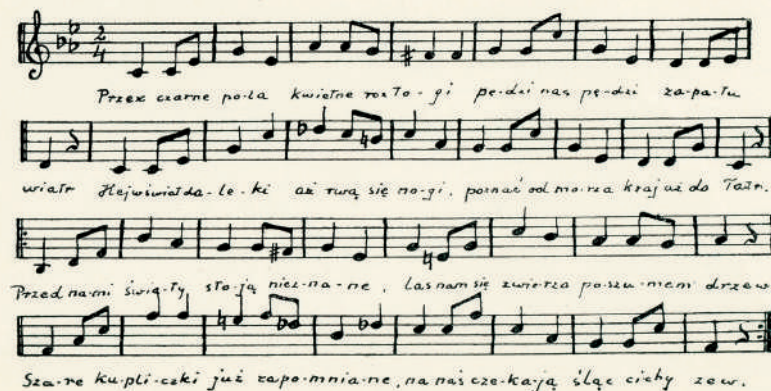 2 4
Przez czarne po-la kwietne rozło-gi pę-dzi nas pę-dzi za-pa-łu
wiatr Hej w świat da-le-ki aż rwą się no-gi, poznać od mo-rza kraj aż do Tatr.
Przed na-mi świą-ty sto-ją niez-na-ne, las nam się zwierza po-szu-mem drzew
Sza-re ku-pli-czki już zapo-mnia-ne, na nas cze-ka-ją śląc cichy zew.